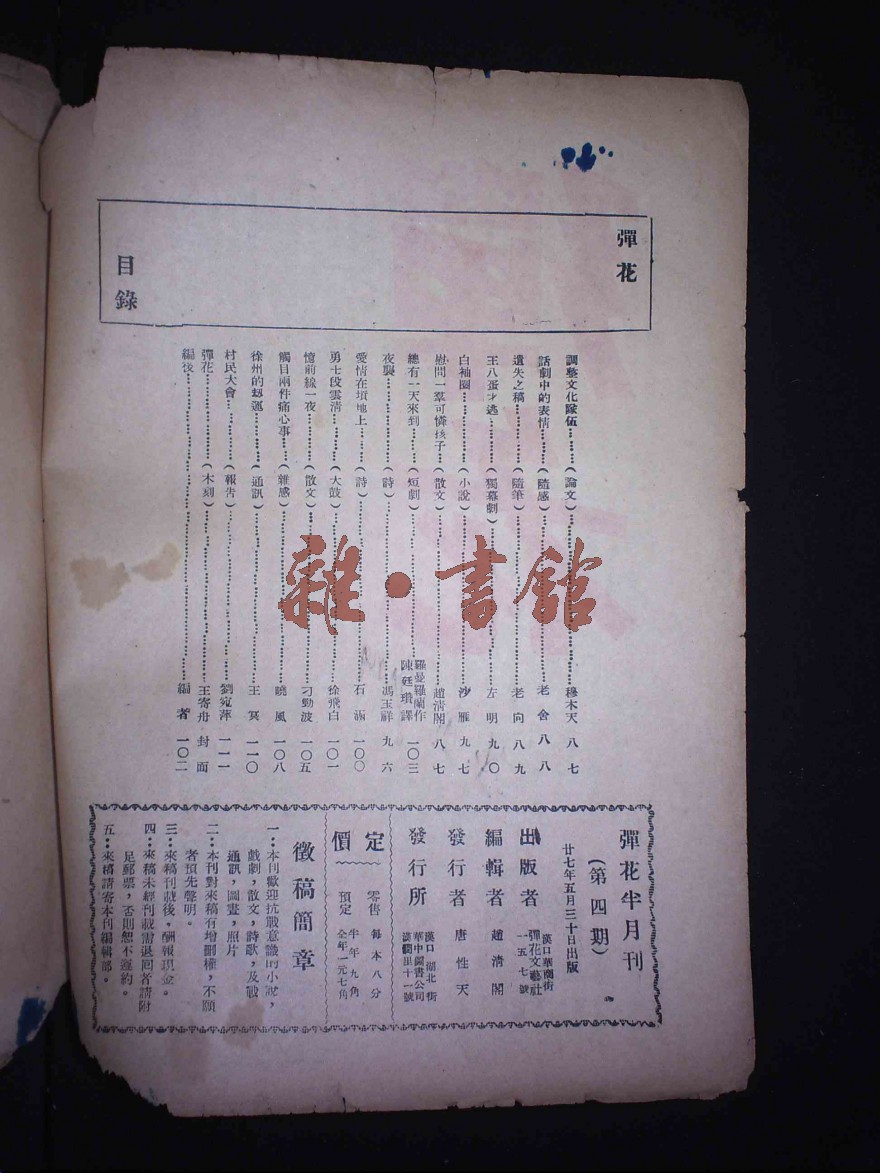 彈花
目錄
調整文化隊伍………(論文)………穆木天 八七
話劇中的表情………(隨感)………老舍 八八
遺失之稿………(隨筆)………老向 八九
王八蛋才逃………(獨幕劇)………左明 九〇
白袖圈………(小說)………沙雁 九七
慰問一羣可憐孩子………(散文)………趙清閣 八七
總有一天來到………(短劇)………羅曼羅蘭作 陳廷瓚譯 一〇三
夜襲………(詩)………馮玉祥 九六
愛情在墳地上………(詩)………石 一〇〇
勇士段雲清………(大鼓)………徐飛白 一〇一
憶前線一夜………(散文)………刁勁波 一〇五
觸目兩件痛心事………(雜感)………曉風 一〇八
徐州的刼運………(通訊)………王冥 一一〇
村民大會………(報告)………劉宛萍 一一一
彈花………(木刻)………王寄舟 封面
編後………編者 一〇二
雜·書館
彈花半月刊
(第四期)
廿七年五月三十日出版
出版者 漢口華蘭街 彈花文藝社 一五七號
編輯者 趙清閣
發行者 唐性天
發行所 漢口湖北街 華中圖書公司 漢潤里十一號
定價
零售 每本八分
預定 半年九角 全年一元七角
徵稿簡章
一:本刊歡迎抗戰意識的小說,
戲劇,散文,詩歌,及戰
通訊,圖畫,照片
二:本刊對來稿有增删權,不願
者預先聲明。
三:來稿刊載後。酬報現金。
四:來稿未經刊載需退囘者請附
足郵票,否則恕不遵約。
五:來稿請寄本刊編輯部。